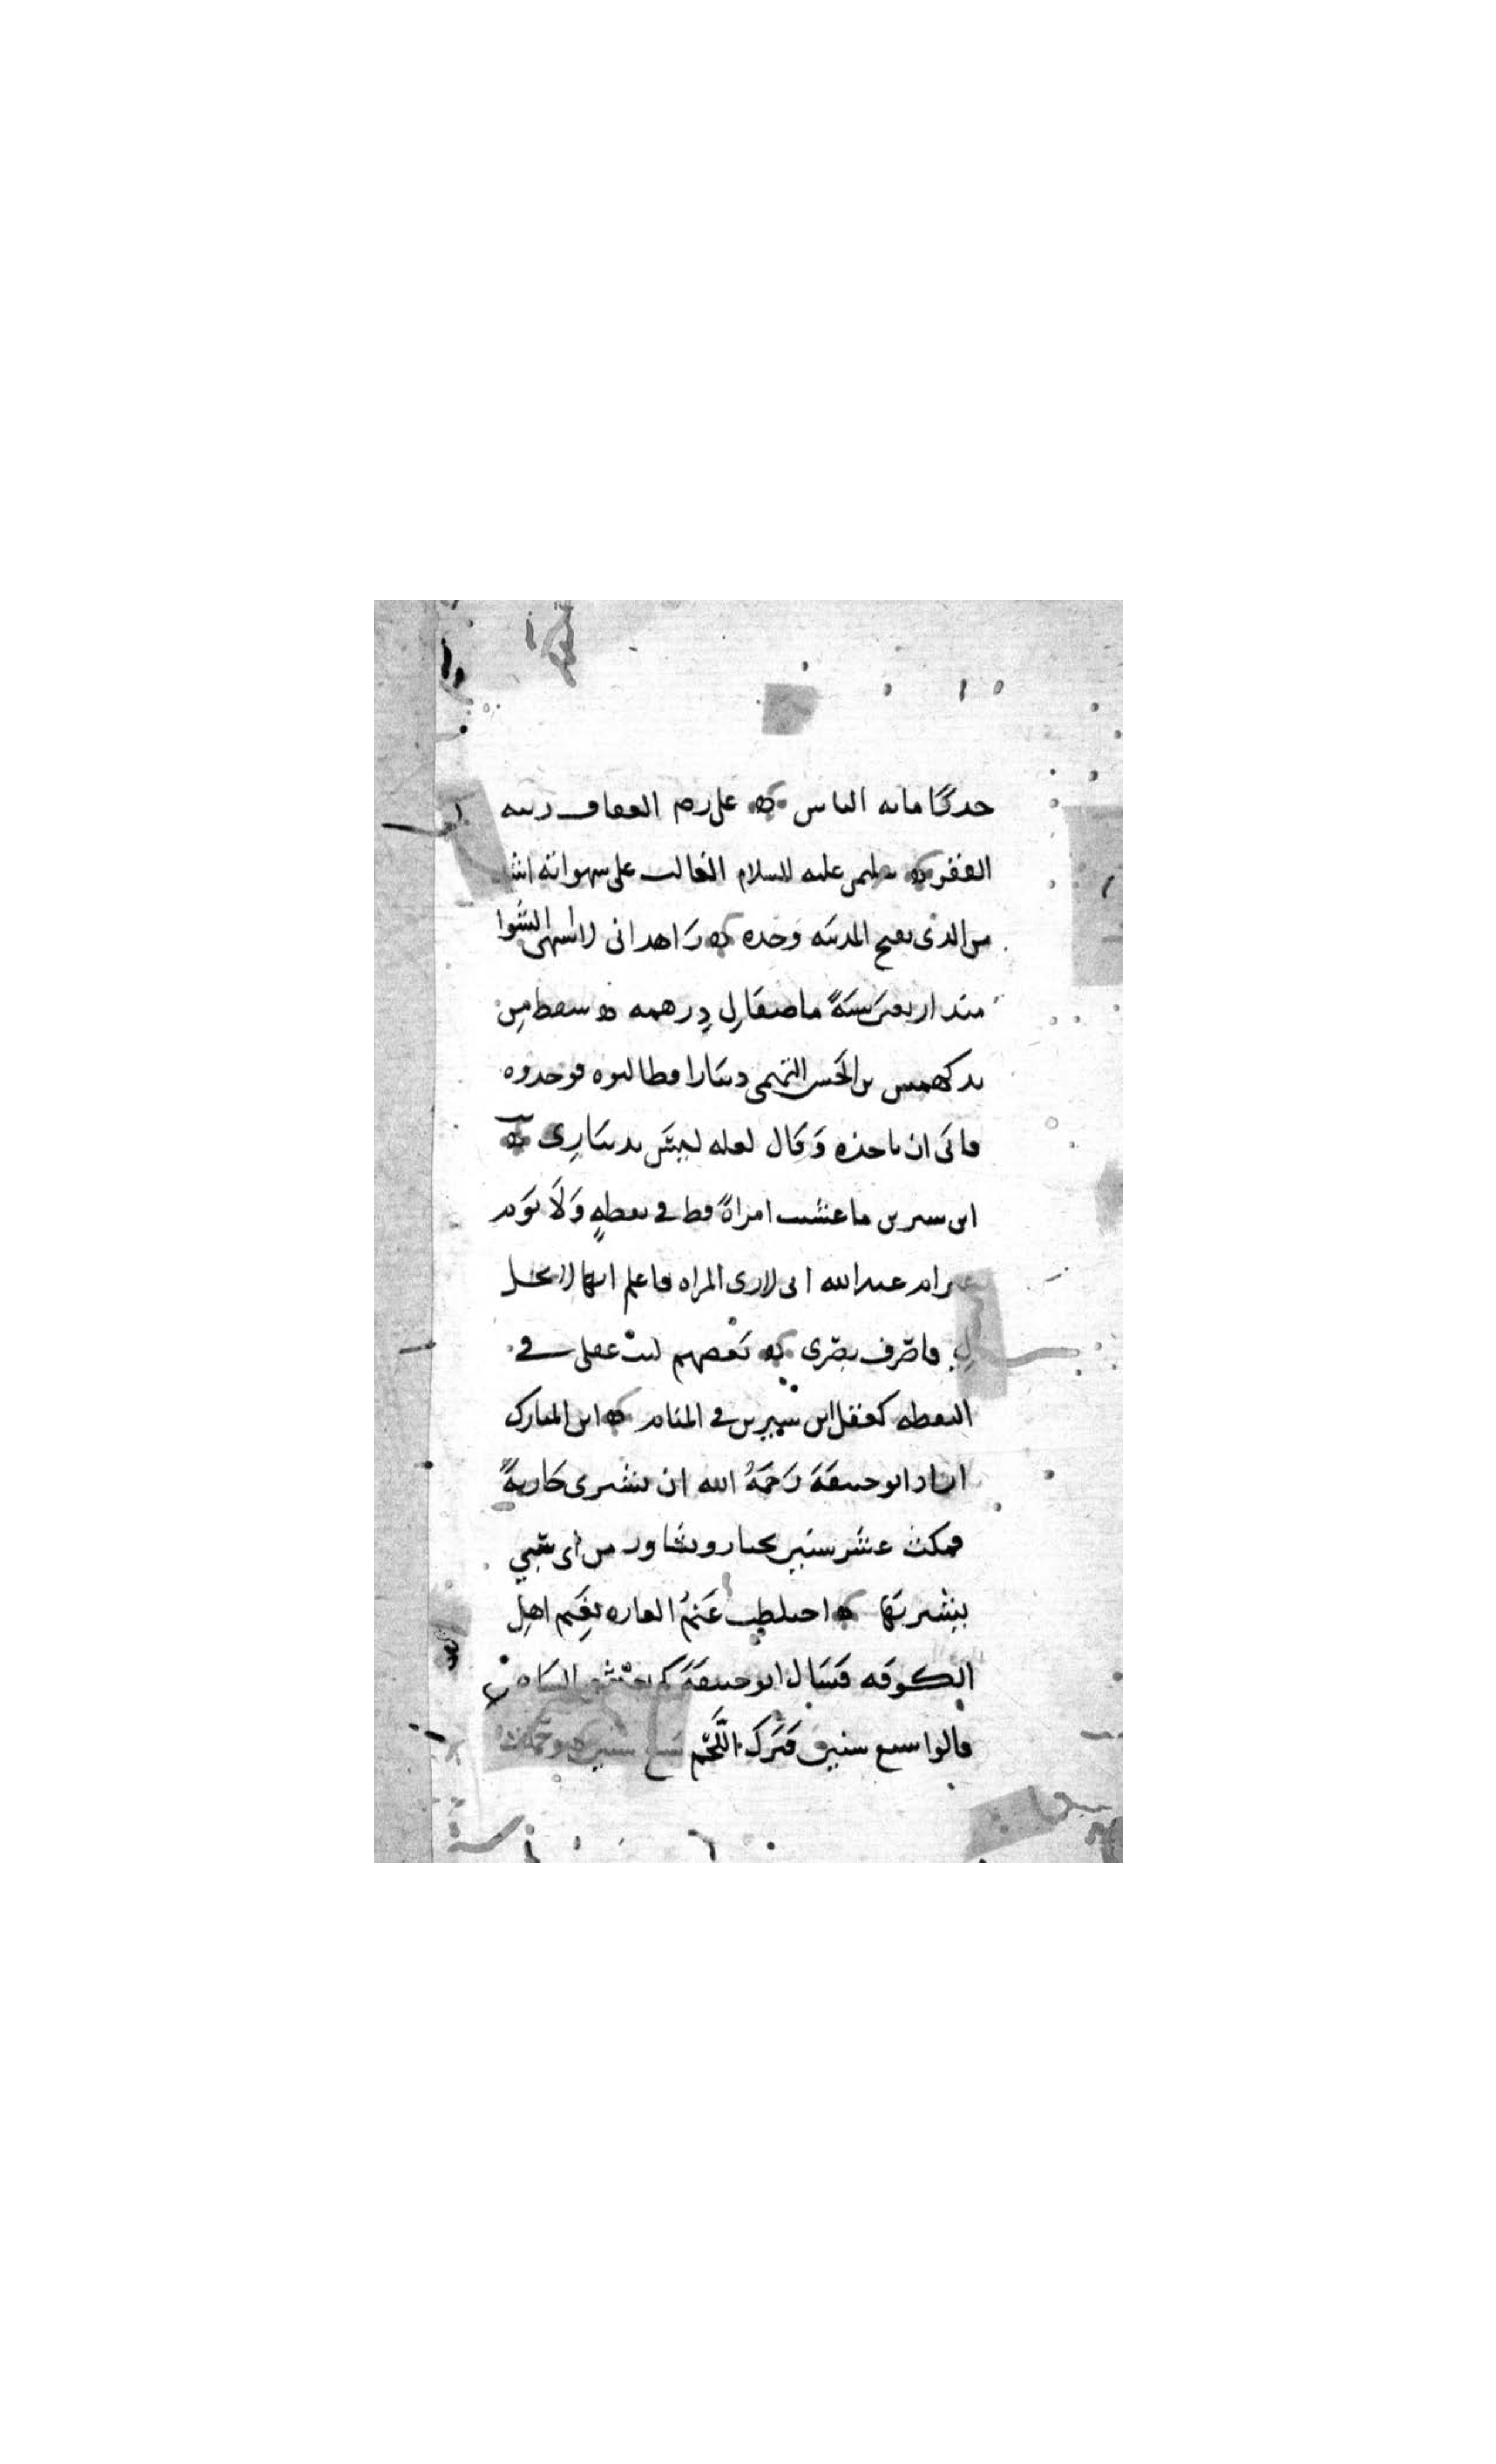 حدرًا مانه الناس ه علي رضه العفاف زينة
الفقر ه سليمن عليه السلام الغالب على شهواته اشد
من الذي يفتح المدينة وحده ه زاهد اني لاشتهي الشوا
منذ اربعين سنةً ما صفا لي درهمه ه سقط من
يد كهمس بن الحسن التميمي دينار فطالبوه فوجدوه
فابى ان ياخذه وَقال لعله ليس بديناري ه
ابن سيرين ما غشيت امراةً قط في يقظةٍ وَلَا نوم
غير ام عبد الله اني لارى المراه فاعلم انها لا تحل
لي فاصرف بصري ه بَعضهم ليت عقلي في
اليقظه كعقل ابن سيرين في المنام ه ابن المبارك
اراد ابو حنيفَةَ رَحمَهُ الله ان يشتري جَاريةً
فمكث عشر سنين يختار ويشاور من اي سبي
يشتريها ه اختلطت غَنَمُ الغاره بغَنم اهل
الكوفه فَسَال ابو حنيفَةَ كم تعيش الشاه
قالوا سبع سنين فَتَركَ اللَّحم سَبع سنين ه وحملت